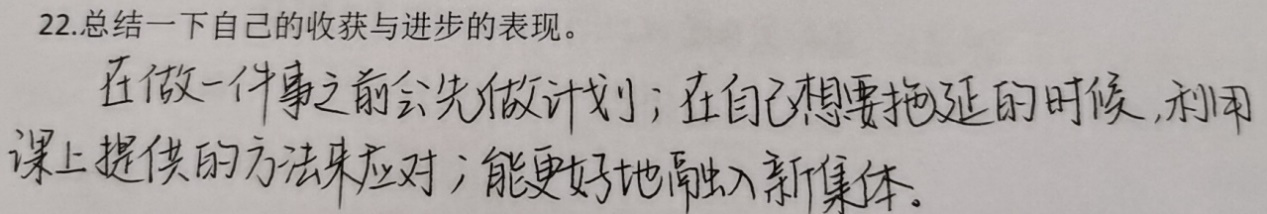 22.总结一下自己的收获与进步的表现。
在做一件事之前会先做计划；在自己想要拖延的时候,利用
课上提供的方法来应对；能更好地融入新集体。